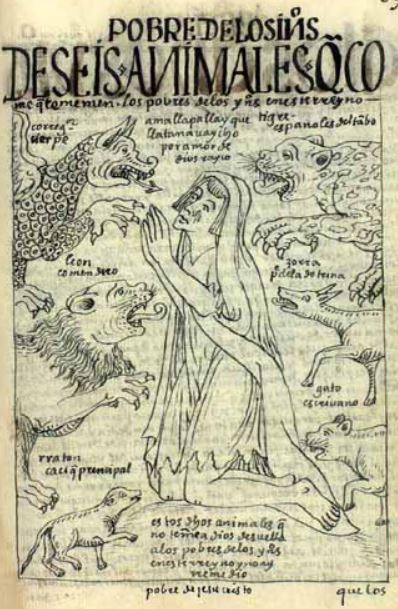 POBRE DE LOS IN̄S
DE SEIS ANIMALES Q̄ CO
me q̄ temen los pobres de los yn̄s en este rreyno
correg.or
cierpe
ama llapallayque
llatanauayicho
por amor de
dios
tigre
españoles del tanbo
leon
comendero
zorra
p.e de la dotrina
gato
escriuano
rraton
caciq̄ prencipal
estos dhos animales q̄
no temen a dios desuella
a los pobres de los yn̄s
en este rreyno y no ay
rremedio
pobre de jesucristo
que los